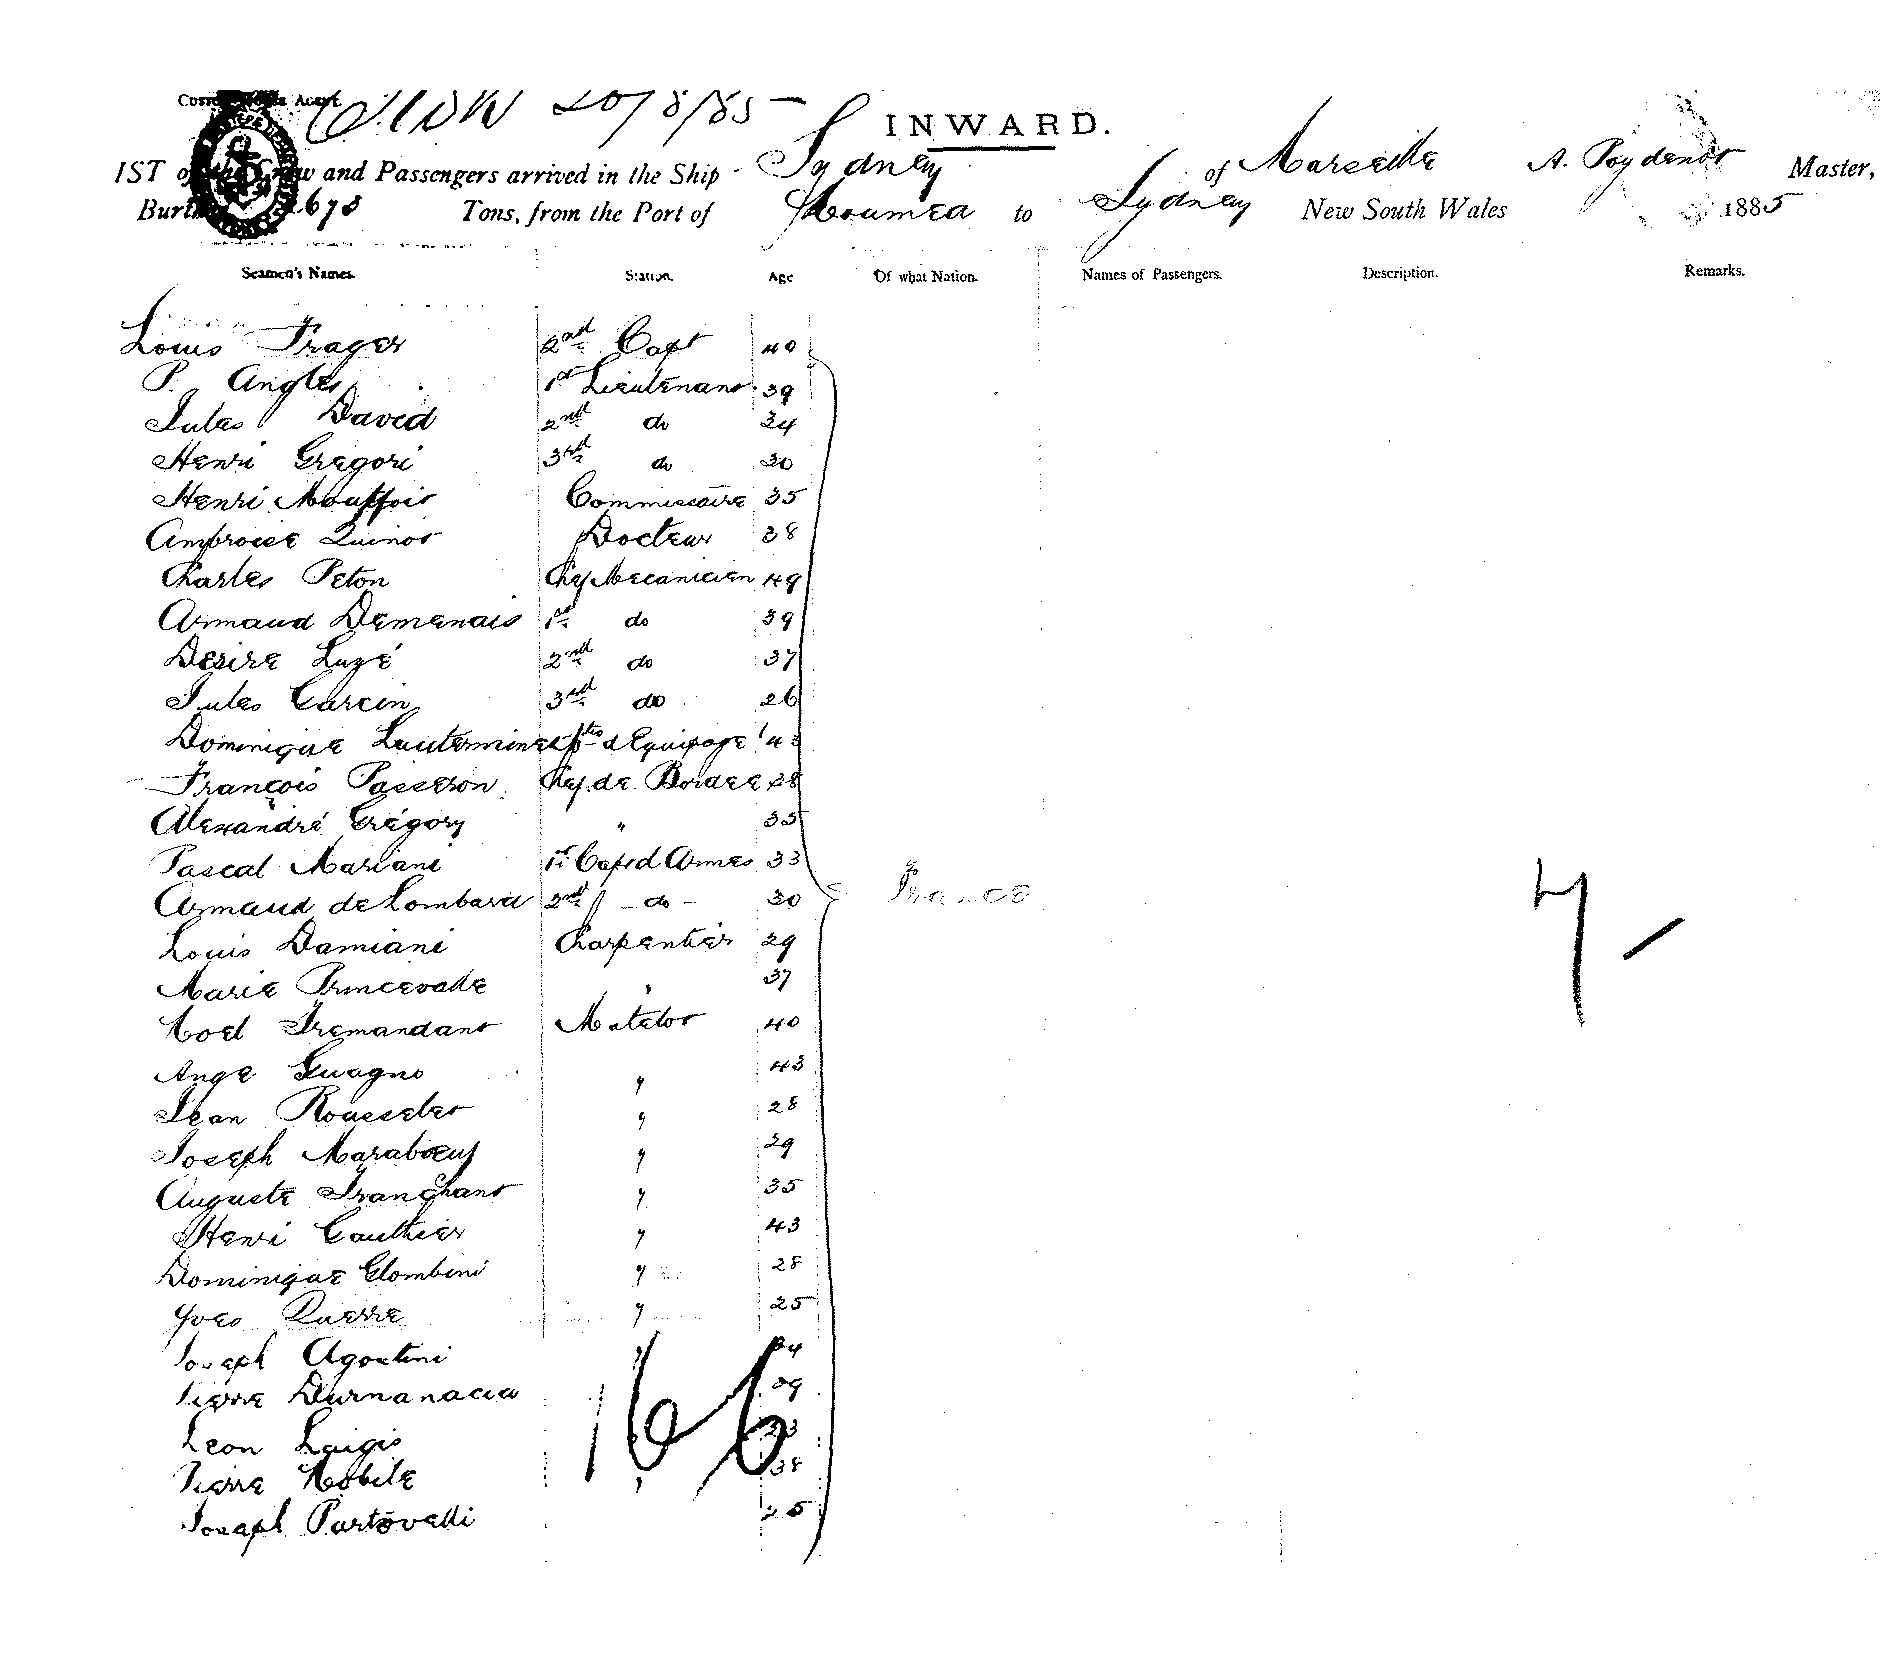 20/8/85
INWARD.
IST of the Crew and Passengers arrived in the Ship Sydney of Marseille A. Poydenot Master,
Tons, from the Port of Noumea to Sydney New South Wales 1885
Seamen's Names. Station. Age Of what Nation. Names of Passengers. Description. Remarks.
Louis Frager 2nd Capt 40
P. Angles 1st Lieutenant 39
Jules David 2nd do 34
Henri Gregori 3rd do 30
Henri Commissaire 35
Ambroise Quinot Docteur 38
Charles Peton Chef Mecanicien 49
Armaud Demenais 1st do 39
Desiré Luzé 2nd do 37
Jules Garcin 3rd do 26
Dominique d'Equipage 43
François Passeron Chef de Bordee 28
Alexandré Grégory " 35
Pascal Mariani 1st Cap d'Armes 33
Armaud de Lombard 2nd - do - 30
Louis Damiani Charpentier 29
France
Marie Princevalle " 37
Noel Tremandant Matelot 40
Ange Guagno " 43
Jean Rousselot " 28
Joseph Maraboeuf " 29
Auguste Tranchant " 35
Henri Gauthier " 43
Dominique Glombini " 28
Yves Querre " 25
Joseph Agostini
Pierre
Leon Luigis
Pierre Nobile 38
Joseph Portovelli 25
166